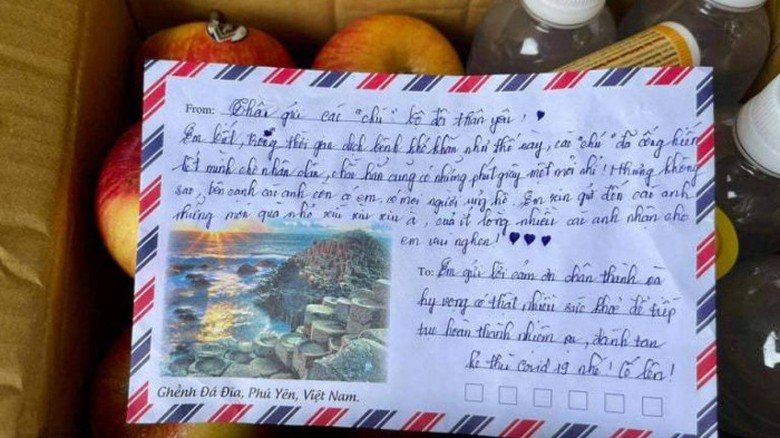 From: Thân gửi các "chú" bộ đội thân yêu! ♥
Em biết, trong thời gian dịch bệnh khó khăn như thế này, các "chú" đã cống hiến
hết mình cho nhân dân, chắc hẳn cũng có những phút giây mệt mỏi nhỉ! Nhưng không
sao, bên cạnh các anh còn có em, có mọi người ủng hộ. Em xin gửi đến các anh
những món quà nhỏ xíu xiu xiu ạ, quà ít lòng nhiều các anh nhận cho
em vui nghen! ♥♥♥
To: Em gửi lời cảm ơn chân thành và
hy vọng có thật nhiều sức khoẻ để tiếp
tục hoàn thành nhiệm vụ, đánh tan
kẻ thù covid 19 nhé! Cố lên!
Ghềnh Đá Đĩa, Phú Yên, Việt Nam.